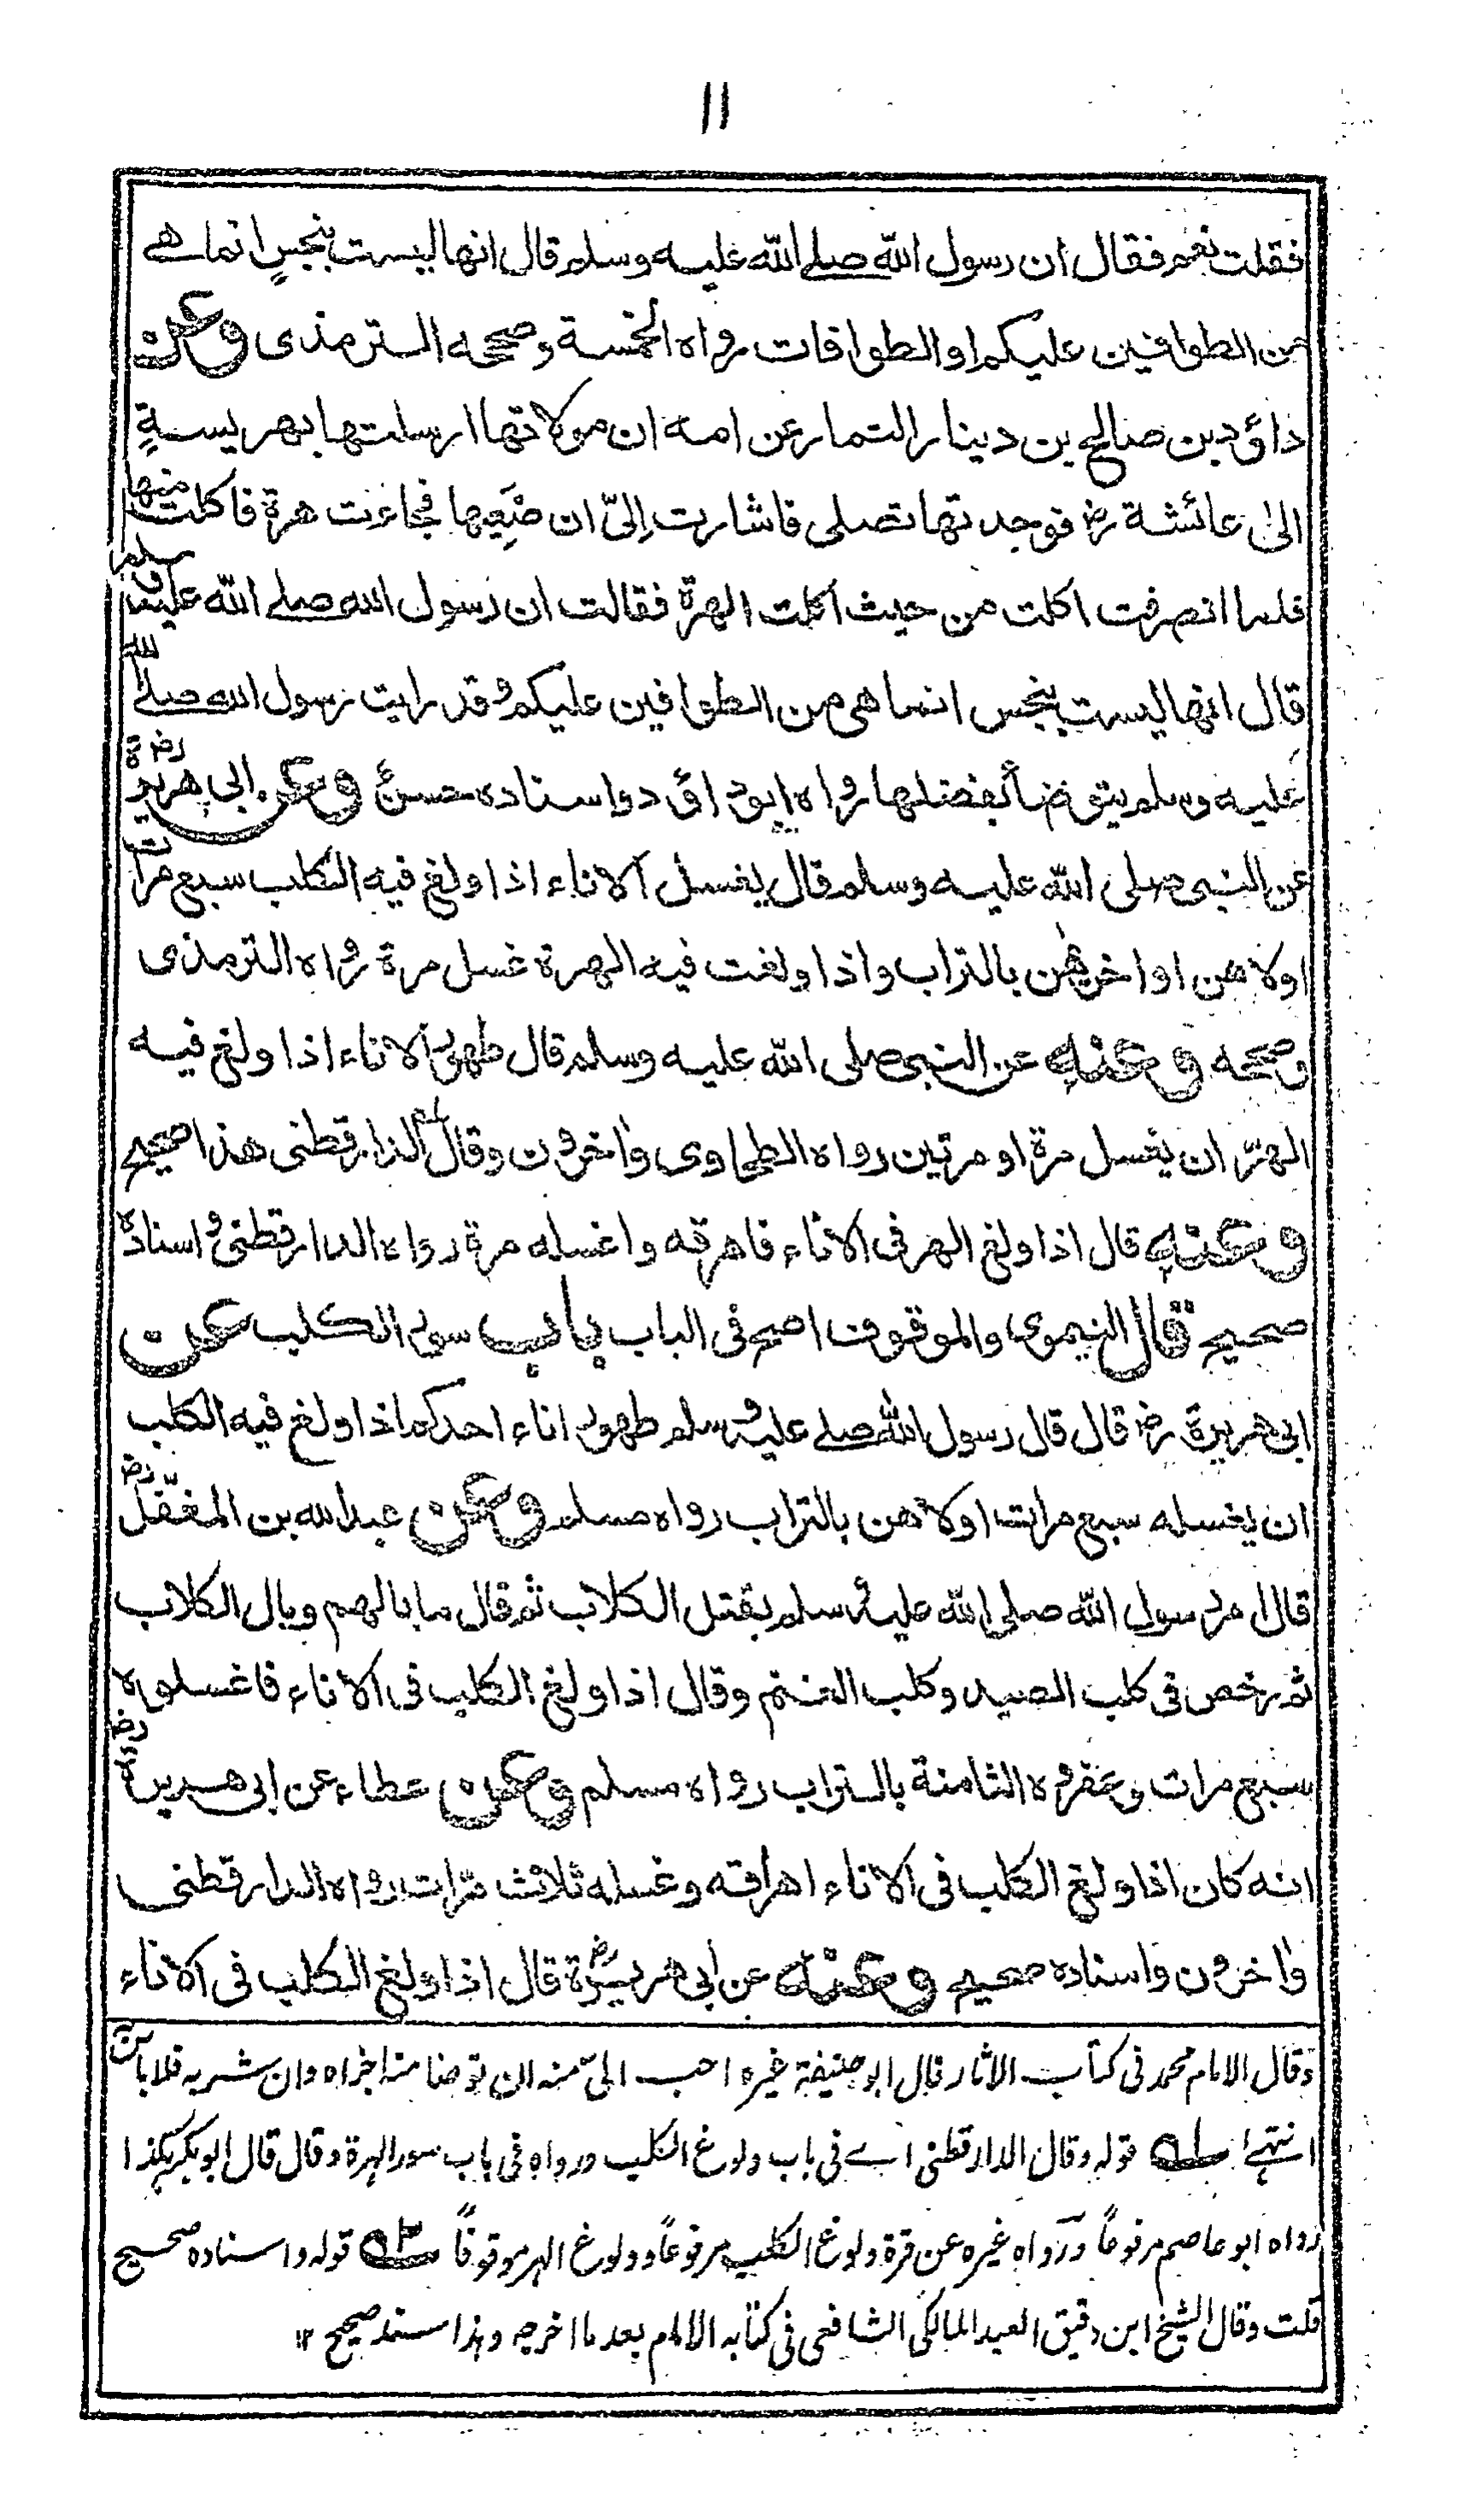 ١١
فقلت نعم فقال ان رسول الله صلے الله عليه وسلم قال انها ليست بنجسٍ انما هے
من الطوافين عليكم او الطوافات رواه الخمسة وصححه الترمذی وعن
داؤد بن صالح بن دينار التمار عن امه ان مولاتها ارسلتها بهريسةٍ
الىٰ عائشة رض فوجدتها تصلی فاشارت اِلیّ ان ضَعِيها فجاءت هرة فاكلت منها
فلما انصرفت اكلت من حيث اكلت الهرة فقالت ان رسول الله صلے الله عليه وسلم
قال انها ليست بنجس انما هی من الطوافين عليكم وقد رايت رسول الله صلے الله
عليه وسلم يتوضأ بفضلها رواه ابوداؤد واسناده حسنٌ وعن ابی هريرة رض
عن النبی صلی الله عليه وسلم قال يغسل الاناء اذا ولغ فيه الكلب سبع مرات
اولاهن او اخرٰهن بالتراب واذا ولغت فيه الهرة غسل مرة رواه الترمذی
وصححه وعنه عن النبی صلی الله عليه وسلم قال طهور الاناء اذا ولغ فيه
الهرّ ان يغسل مرة او مرتين رواه الطحاوی واٰخرون وقال الدارقطنی هذا صحيح
وعنه قال اذا ولغ الهر فی الاناء فاهرقه واغسله مرة رواه الدارقطنی واسناده
صحيح قال النيموی والموقوف اصح فی الباب باب سور الكلب عن
ابی هريرة رض قال قال رسول الله صلے عليه وسلم طهور اناء احدكم اذا ولغ فيه الكلب
ان يغسله سبع مرات اولاهن بالتراب رواه مسلم وعن عبدالله بن المغفّل رض
قال امر رسول الله صلی الله عليه وسلم بقتل الكلاب ثم قال ما بالهم وبال الكلاب
ثم رخص فی كلب الصيد وكلب الغنم وقال اذا ولغ الكلب فی الاناء فاغسلوه
سبع مرات وعفروه الثامنة بالتراب رواه مسلم وعن عطاء عن ابی هريرة رض
انه كان اذا ولغ الكلب فی الاناء اهراقه وغسله ثلاث مرّات رواه الدارقطنی
واٰخرون واسناده صحيح وعنه عن ابی هريرة رض قال اذا ولغ الكلب فی الاناء
وقال الامام محمد فی كتاب الاثار قال ابوحنيفة غيره احب الیّ منه ان توضا منه اجزاه وان شربه فلا باس
انتهے ١ ؎ قوله وقال الدارقطنی اے فی باب ولوغ الكلب ورواه فی باب سور الهرة وقال قال ابوبكر كذا
رواه ابو عاصم مرفوعاً ورواه غيره عن قرة ولوغ الكلب مرفوعاً وولوغ الهر موقوفاً ٢ ؎ قوله واسناده صحيح
قلت وقال الشيخ ابن دقيق العيد المالكی الشافعی فی كتابه الامام بعد ما اخرجه وهذا سند صحيح ١٢